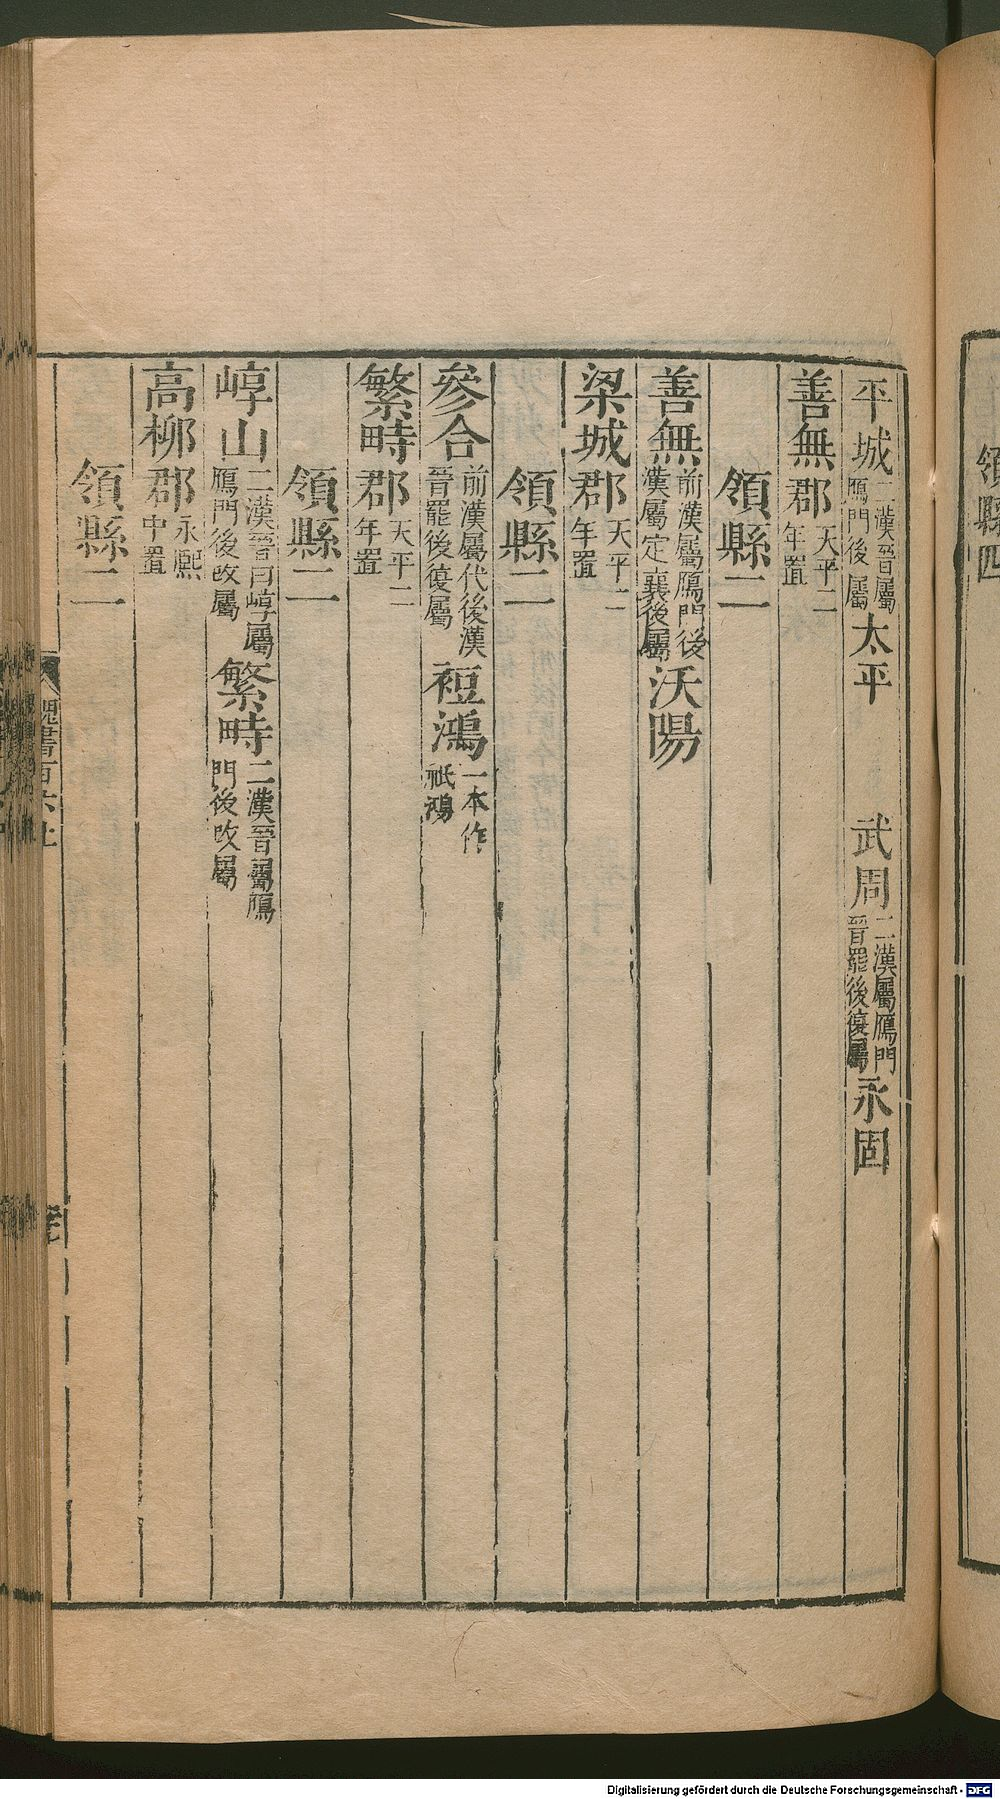 領縣四
平城二漢晉屬鴈門後屬太平 武周二漢屬鴈門晉罷後復屬永固
善無郡天平二年置
領縣二
善無前漢屬鴈門後漢屬定襄後屬沃陽
梁城郡天平二年置
領縣二
參合前漢屬代後漢晉罷後復屬裋鴻一本作祇鴻
繁畤郡天平二年置
領縣二
崞山二漢晉曰崞屬鴈門後改屬繁畤二漢晉屬鴈門後改屬
高柳郡永熙中置
領縣二
魏書百六上
Digitalisierung gefördert durch die Deutsche Forschungsgemeinschaft - DFG